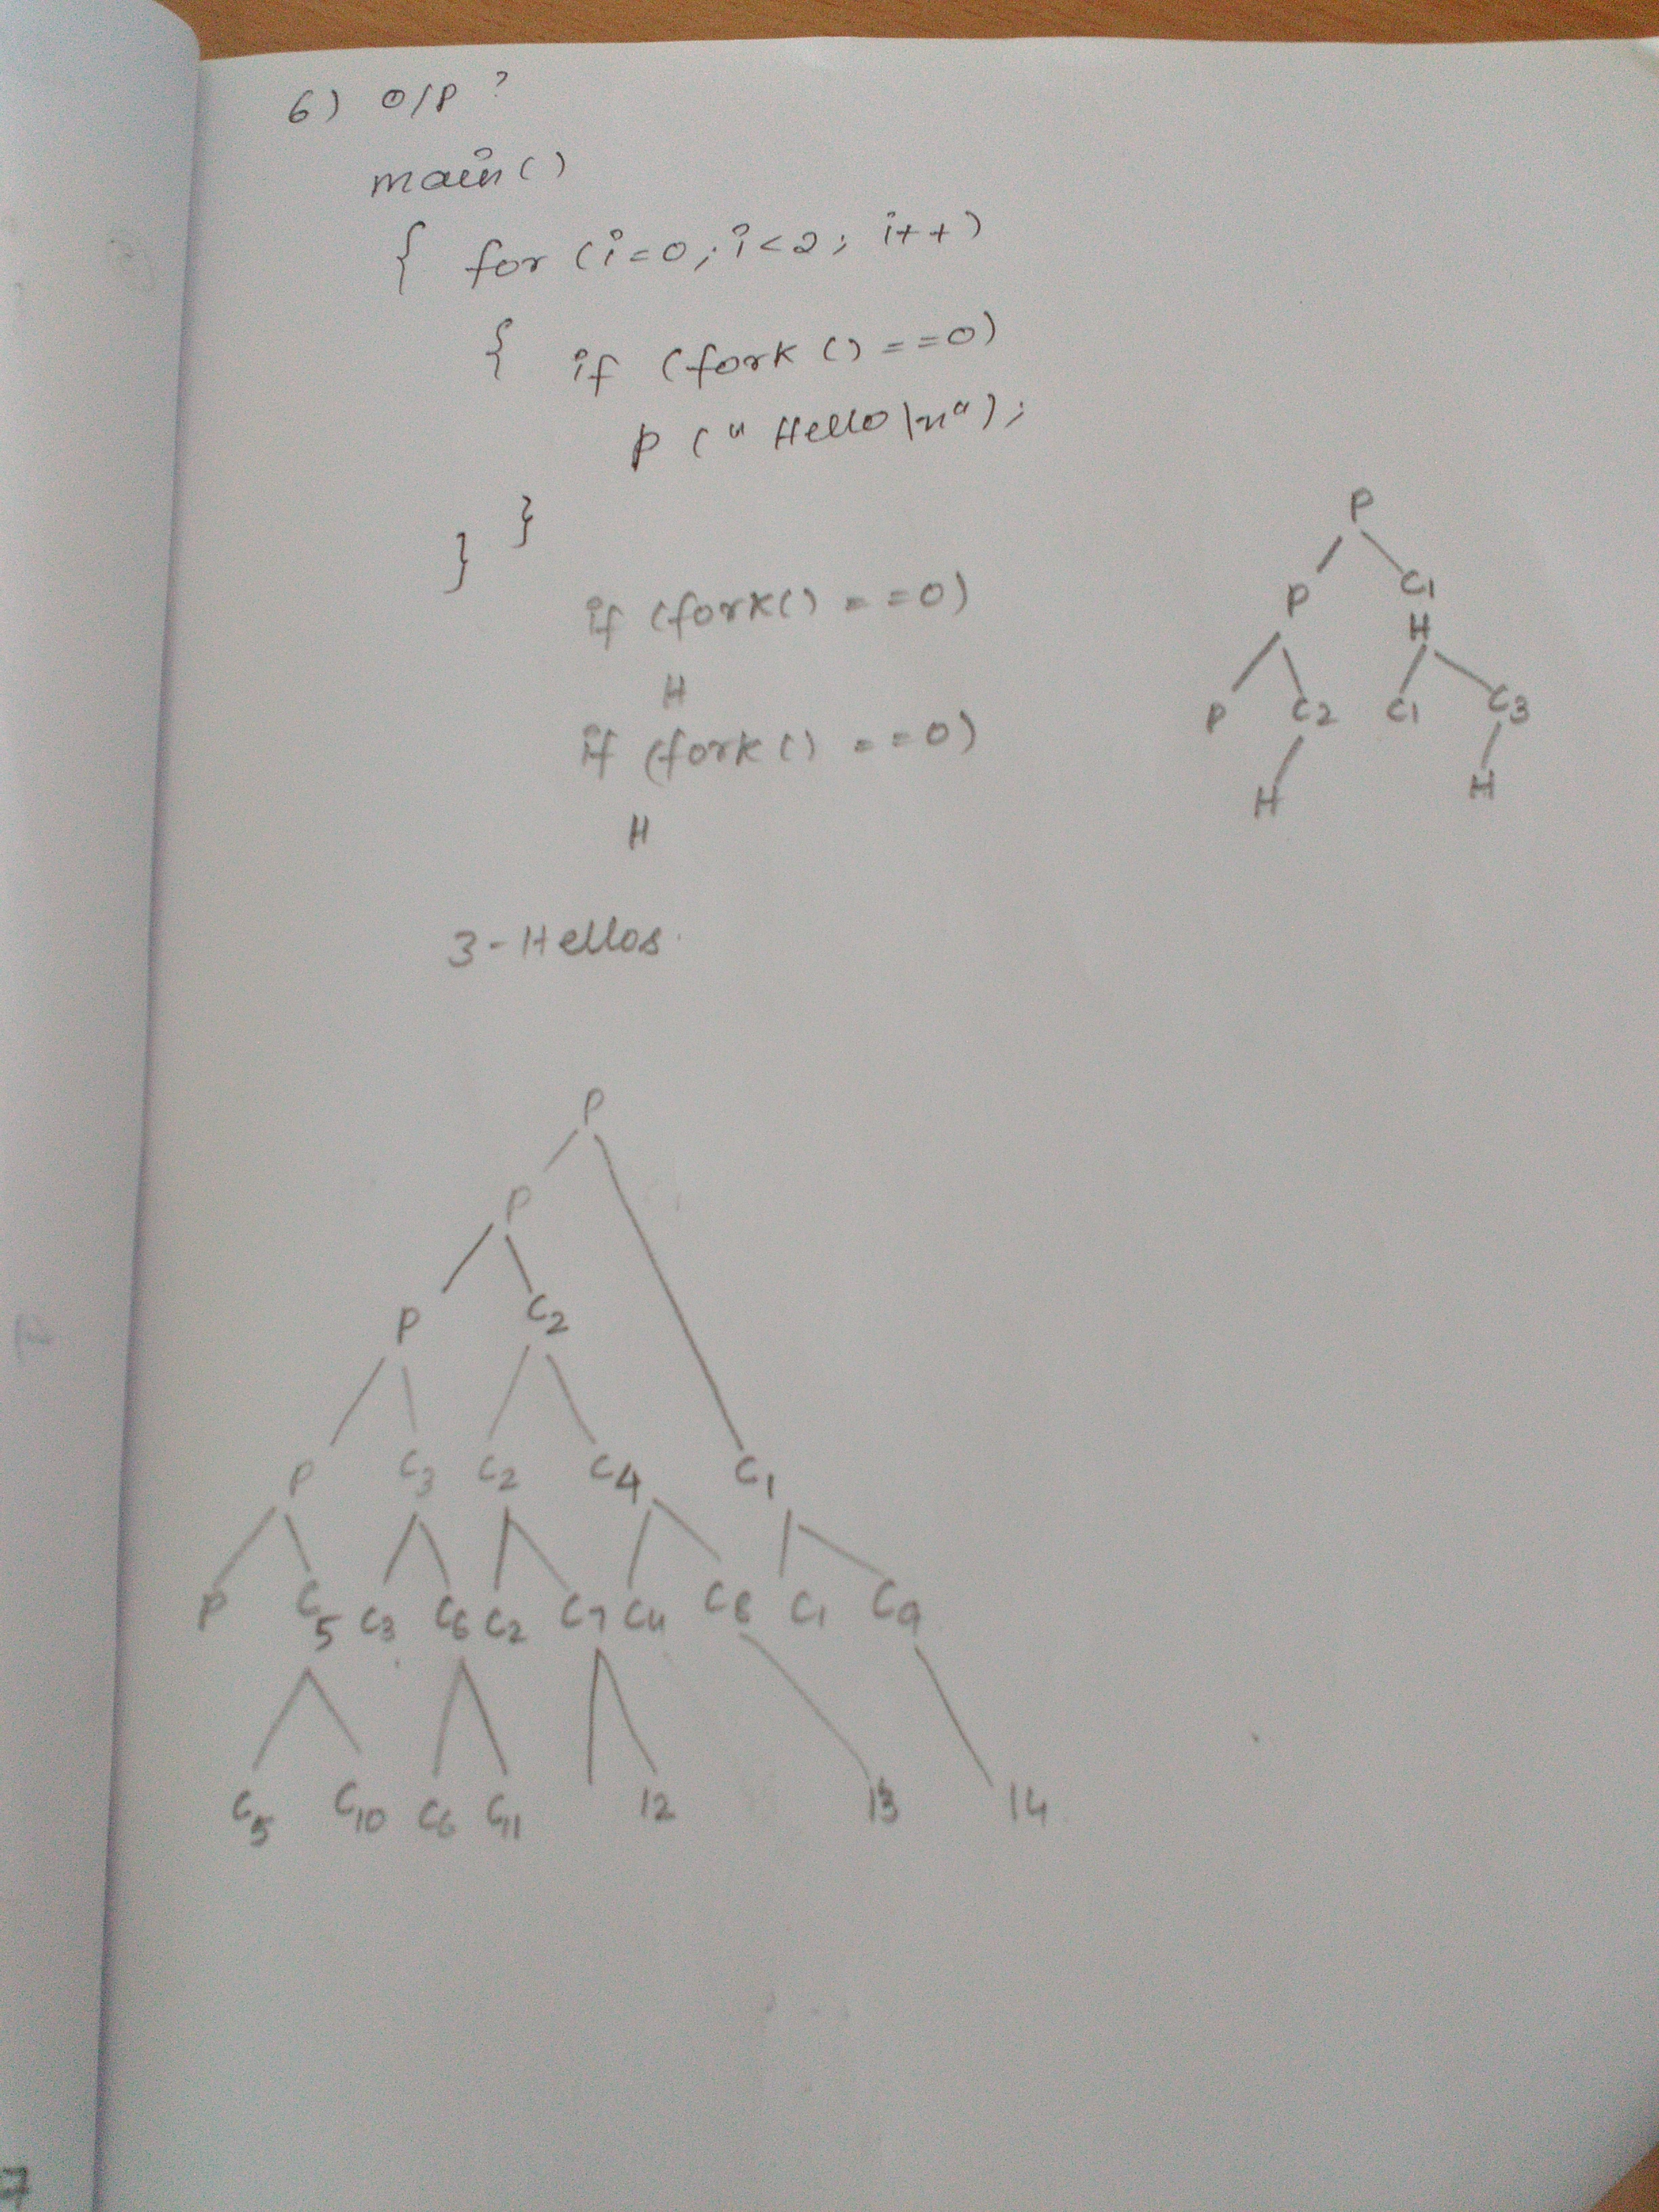 6) O/P ?
main()
{ for (i=0; i<2; i++)
{ if (fork () ==0)
p ("Hello\n");
}
}
if (fork() ==0)
H
if (fork() ==0)
H
3-Hellos.
P
P C1
H
P C2 C1 C3
H H
P
P
P C2
P C3 C2 C4 C1
P C5 C3 C6 C2 C7 C4 C8 C1 C9
C5 C10 C6 C11 12 13 14
7